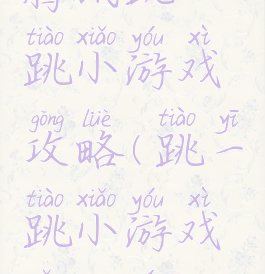 tiào xiǎo yóu xì
跳小游戏
gōng lüè tiào yī
攻略(跳一
tiào xiǎo yóu xì
跳小游戏